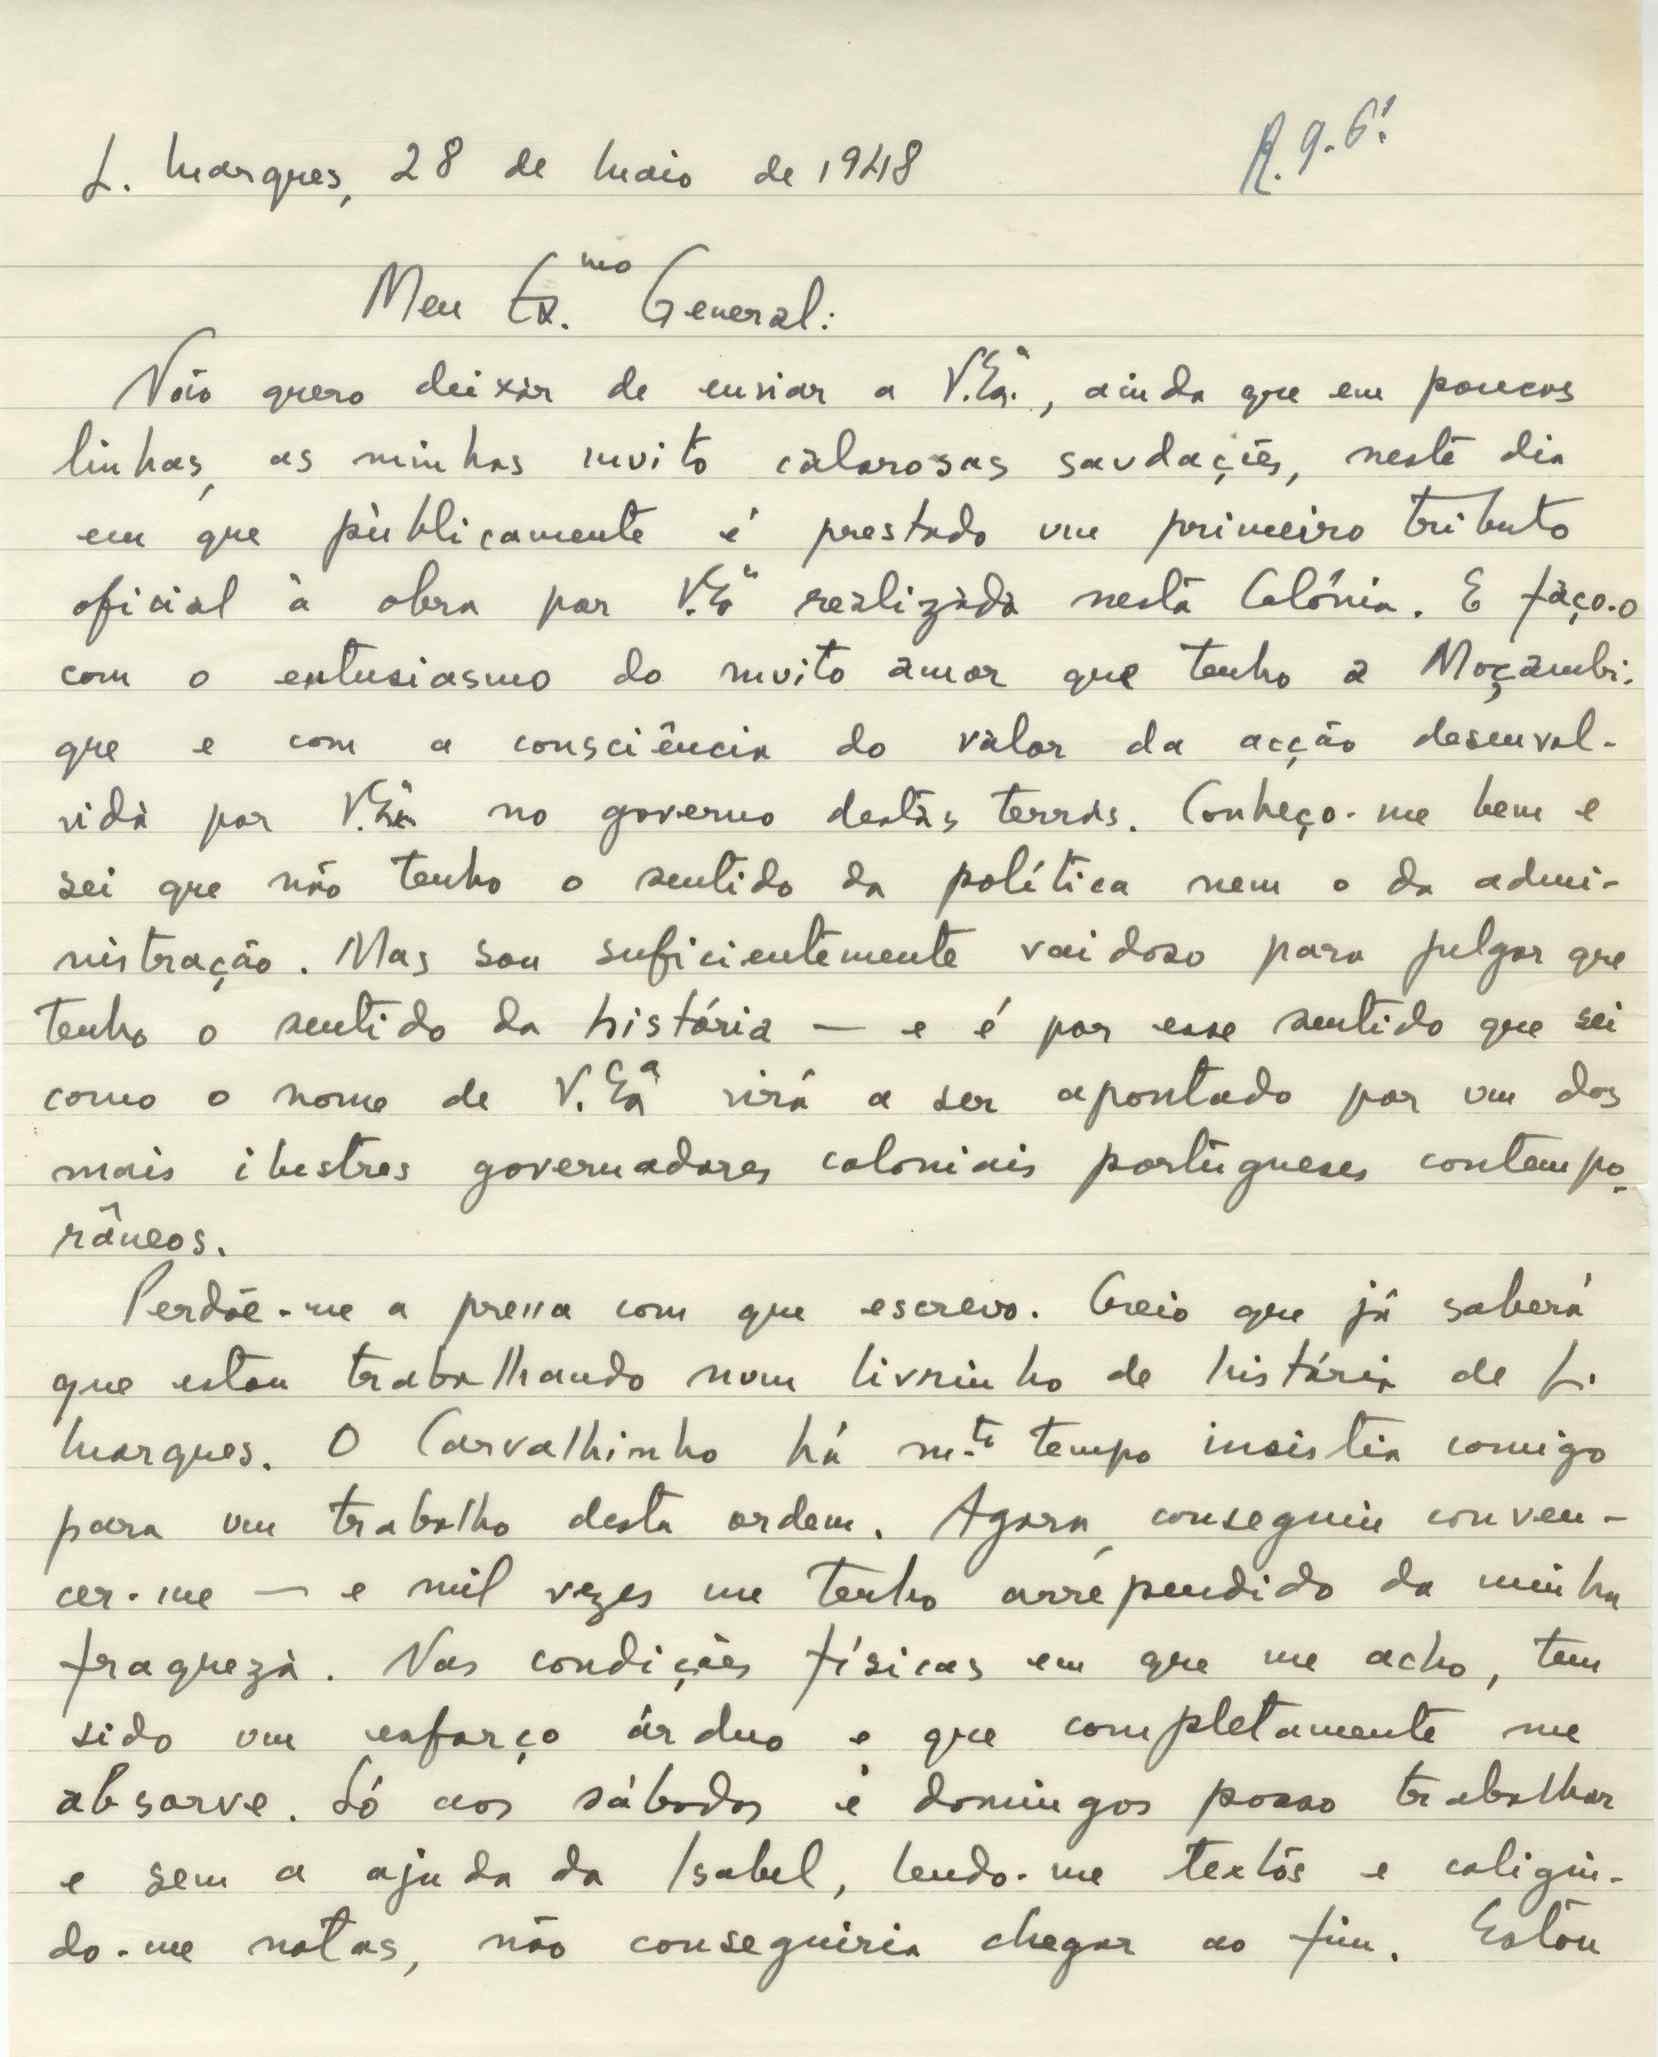 L. Marques, 28 de Maio de 1948
R. 9.6.
Meu Ex.mo General:
Não quero deixar de enviar a V. Ex.ª, ainda que em poucas
linhas, as minhas muito calorosas saudações, neste dia
em que pùblicamente é prestado um primeiro tributo
oficial à obra por V. Ex.ª realizada nesta Colónia. E faço-o
com o entusiasmo do muito amor que tenho a Moçambi-
que e com a consciência do valor da acção desenvol-
vida por V. Ex.ª no governo destas terras. Conheço-me bem e
sei que não tenho o sentido da política nem o da admi-
nistração. Mas sou suficientemente vaidoso para julgar que
tenho o sentido da história — e é por esse sentido que sei
como o nome de V. Ex.ª virá a ser apontado por um dos
mais ilustres governadores coloniais portugueses contempo-
râneos.
Perdõe-me a pressa com que escrevo. Creio que já saberá
que estou trabalhando num livrinho de história de L.
Marques. O Carvalhinho há m.to tempo insistia comigo
para um trabalho desta ordem. Agora, conseguiu conven-
cer-me — e mil vezes me tenho arrependido da minha
fraqueza. Nas condições físicas em que me acho, tem
sido um esforço árduo e que completamente me
absorve. Só aos sábados e domingos posso trabalhar
e sem a ajuda da Isabel, lendo-me textos e coligin-
do-me notas, não conseguiria chegar ao fim. Estou